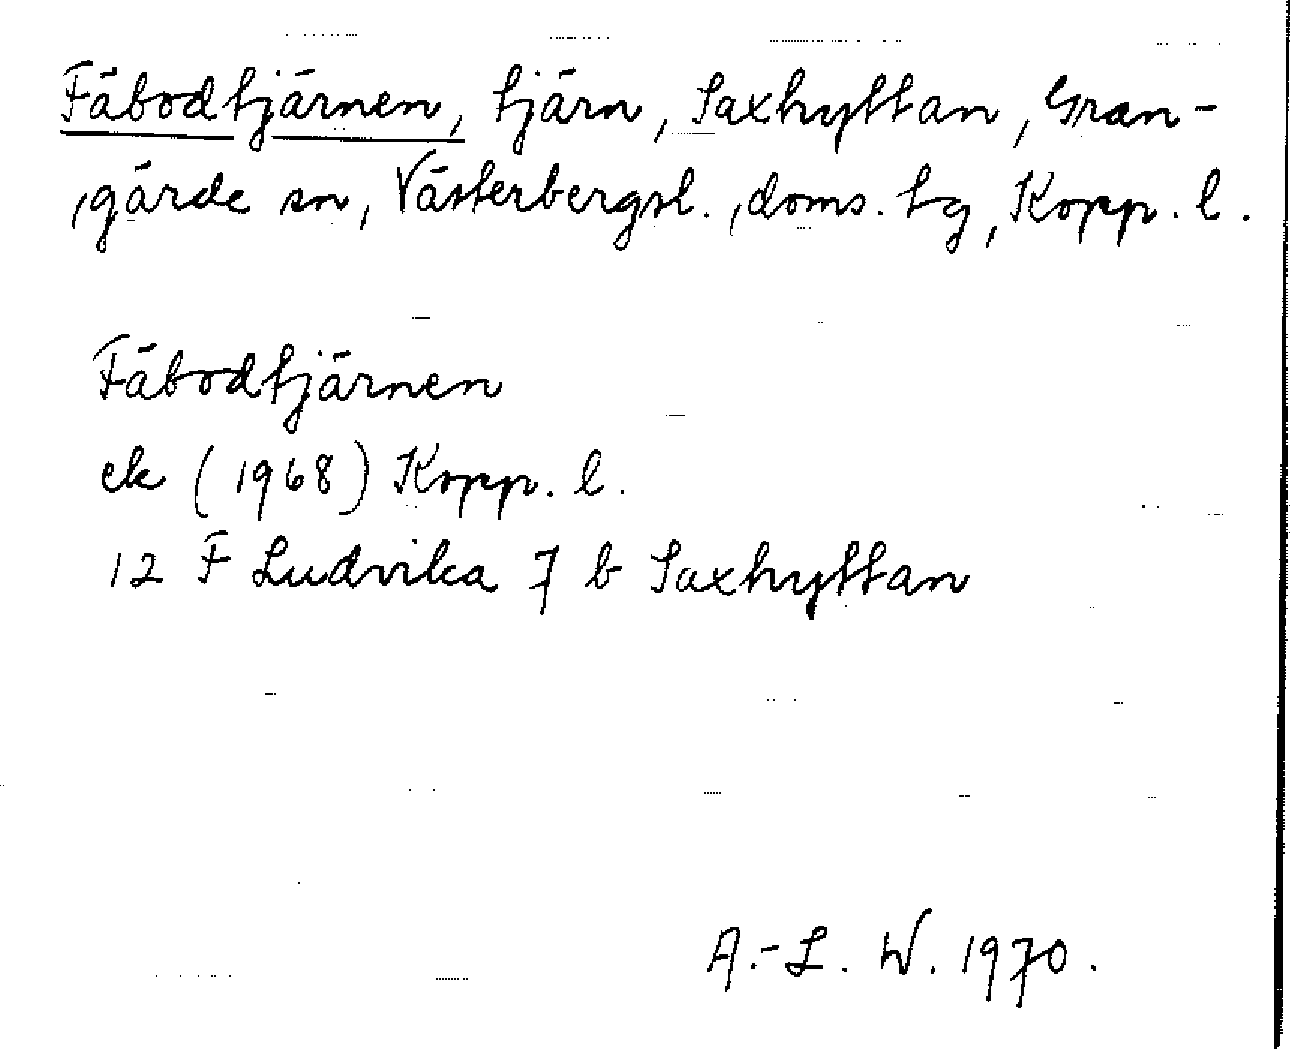 Fäbodtjärnen, tjärn, Saxhyttan, Gran-
gärde sn, Västerbergsl. doms. tg, Kopp. l.
Fäbodtjärnen
ek (1968) Kopp. l.
12 F Ludvika 7 b Saxhyttan
A.-L. W. 1970.